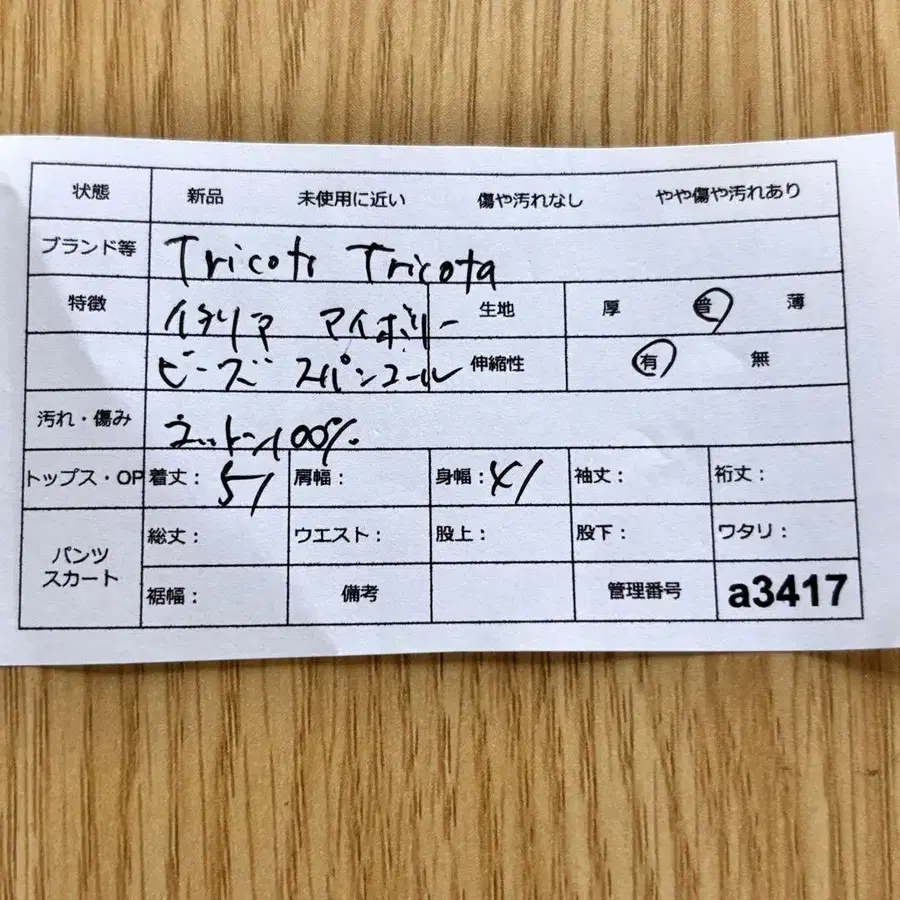 状態 新品 未使用に近い 傷や汚れなし やや傷や汚れあり
ブランド等 Tricots Tricota
特徴 イタリア アイボリー 生地 厚 普 薄
ビーズ スパンコール 伸縮性 有 無
汚れ・傷み コットン100%
トップス・OP 着丈： 51 肩幅： 身幅： 41 袖丈： 裄丈：
パンツ スカート
総丈： ウエスト： 股上： 股下： ワタリ：
裾幅： 備考 管理番号 a3417